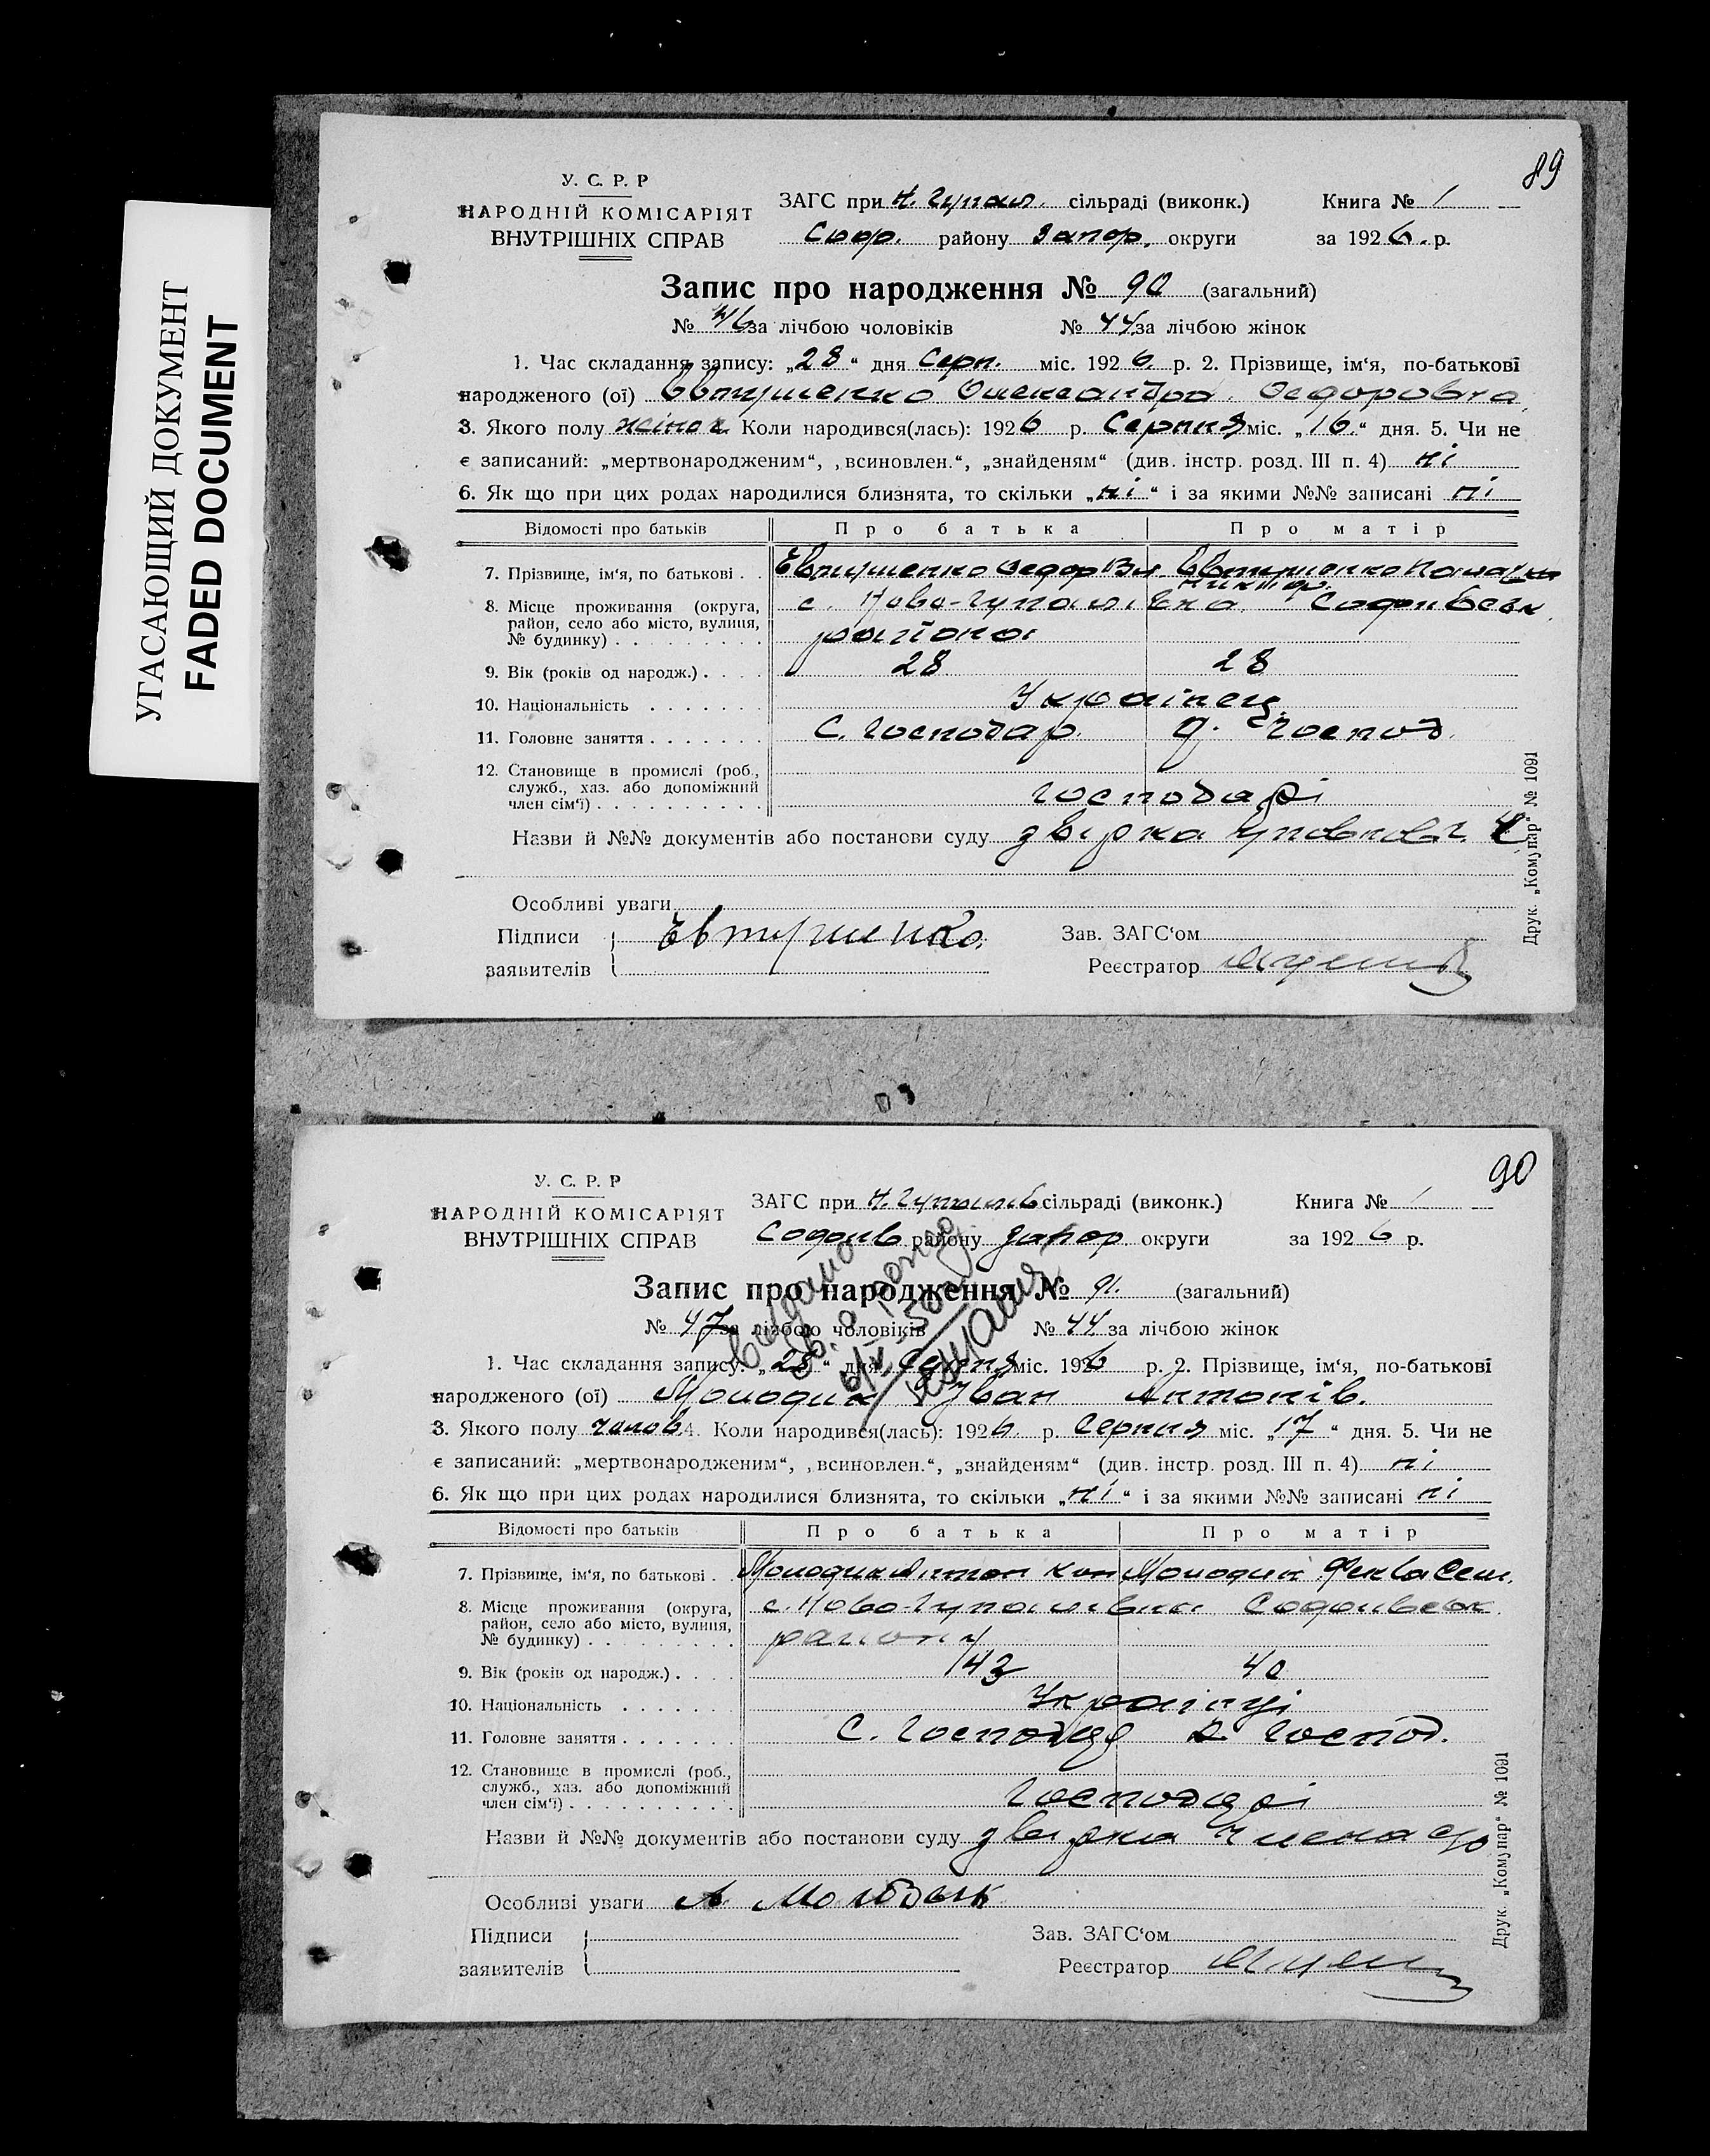 УГАСАЮЩИЙ ДОКУМЕНТ
FADED DOCUMENT
89
У. С. Р. Р
НАРОДНІЙ КОМІСАРІЯТ
ВНУТРІШНІХ СПРАВ
ЗАГС при Н. Гупал. сільраді (виконк.) Книга № 1
Соф. району Запор. округи за 1926. р.
Запис про народження № 90 (загальний)
№ 46 за лічбою чоловіків № 44 за лічбою жінок
1. Час складання запису: „28“ дня Серп. міс. 1926. р. 2. Прізвище, ім‘я, по-батькові
народженого (ої) Евтушенко Олександра Федоровна
3. Якого полу жіноч. Коли народився(лась): 1926 р. Серпня міс. „16.“ дня. 5. Чи не
є записаний: „мертвонародженим“, „всиновлен.“, „знайденям“ (див. інстр. розд. III п. 4) ні
6. Як що при цих родах народилися близнята, то скільки „ні“ і за якими №№ записані ні
Відомості про батьків Про батька Про матір
7. Прізвище, ім‘я, по батькові . . Евтушенко Федор Евтушенко
8. Місце проживання (округа, район, село або місто, вулиця, № будинку) . . . . . . . . . с. Ново-Гупалівка Софиївськ.
района
9. Вік (років од народж.) . . . . 28 28
10. Національність . . . . . . . Українец
11. Головне заняття . . . . . . . С. господар. д. господ.
12. Становище в промислі (роб., служб., хаз. або допоміжний член сім‘ї) . . . . . . . . . . господарі
Назви й №№ документів або постанови суду звірка
Особливі уваги
Підписи Евтушенко. Зав. ЗАГС‘ом
заявителів Реєстратор
Друк. „Комунар“ № 1091
90
У. С. Р. Р
НАРОДНІЙ КОМІСАРІЯТ
ВНУТРІШНІХ СПРАВ
ЗАГС при Н. Гупалів сільраді (виконк.) Книга № 1
Софиїв району Запор. округи за 1926 р.
Запис про народження № 91. (загальний)
№ 47 за лічбою чоловіків № 44 за лічбою жінок
1. Час складання запису: „28“ дня Серпня міс. 1926 р. 2. Прізвище, ім‘я, по-батькові
народженого (ої) Молодик Іван Антонів.
3. Якого полу чолов. 4. Коли народився(лась): 1926. р. Серпня міс. „17“ дня. 5. Чи не
є записаний: „мертвонародженим“, „всиновлен.“, „знайденям“ (див. інстр. розд. III п. 4) ні
6. Як що при цих родах народилися близнята, то скільки „ні“ і за якими №№ записані ні
Відомості про батьків Про батька Про матір
7. Прізвище, ім‘я, по батькові . . Молодик Антон Кон Молодик Фекла Сем.
8. Місце проживання (округа, район, село або місто, вулиця, № будинку) . . . . . . . . . с. Ново-Гупалівки Софиївськ.
району
9. Вік (років од народж.) . . . . 43 40
10. Національність . . . . . . . Українці
11. Головне заняття . . . . . . . С. господар Д. господ.
12. Становище в промислі (роб., служб., хаз. або допоміжний член сім‘ї) . . . . . . . . . . господарі
Назви й №№ документів або постанови суду звірка
Особливі уваги А. Молодык
Підписи Зав. ЗАГС‘ом
заявителів Реєстратор
Друк. „Комунар“ № 1091